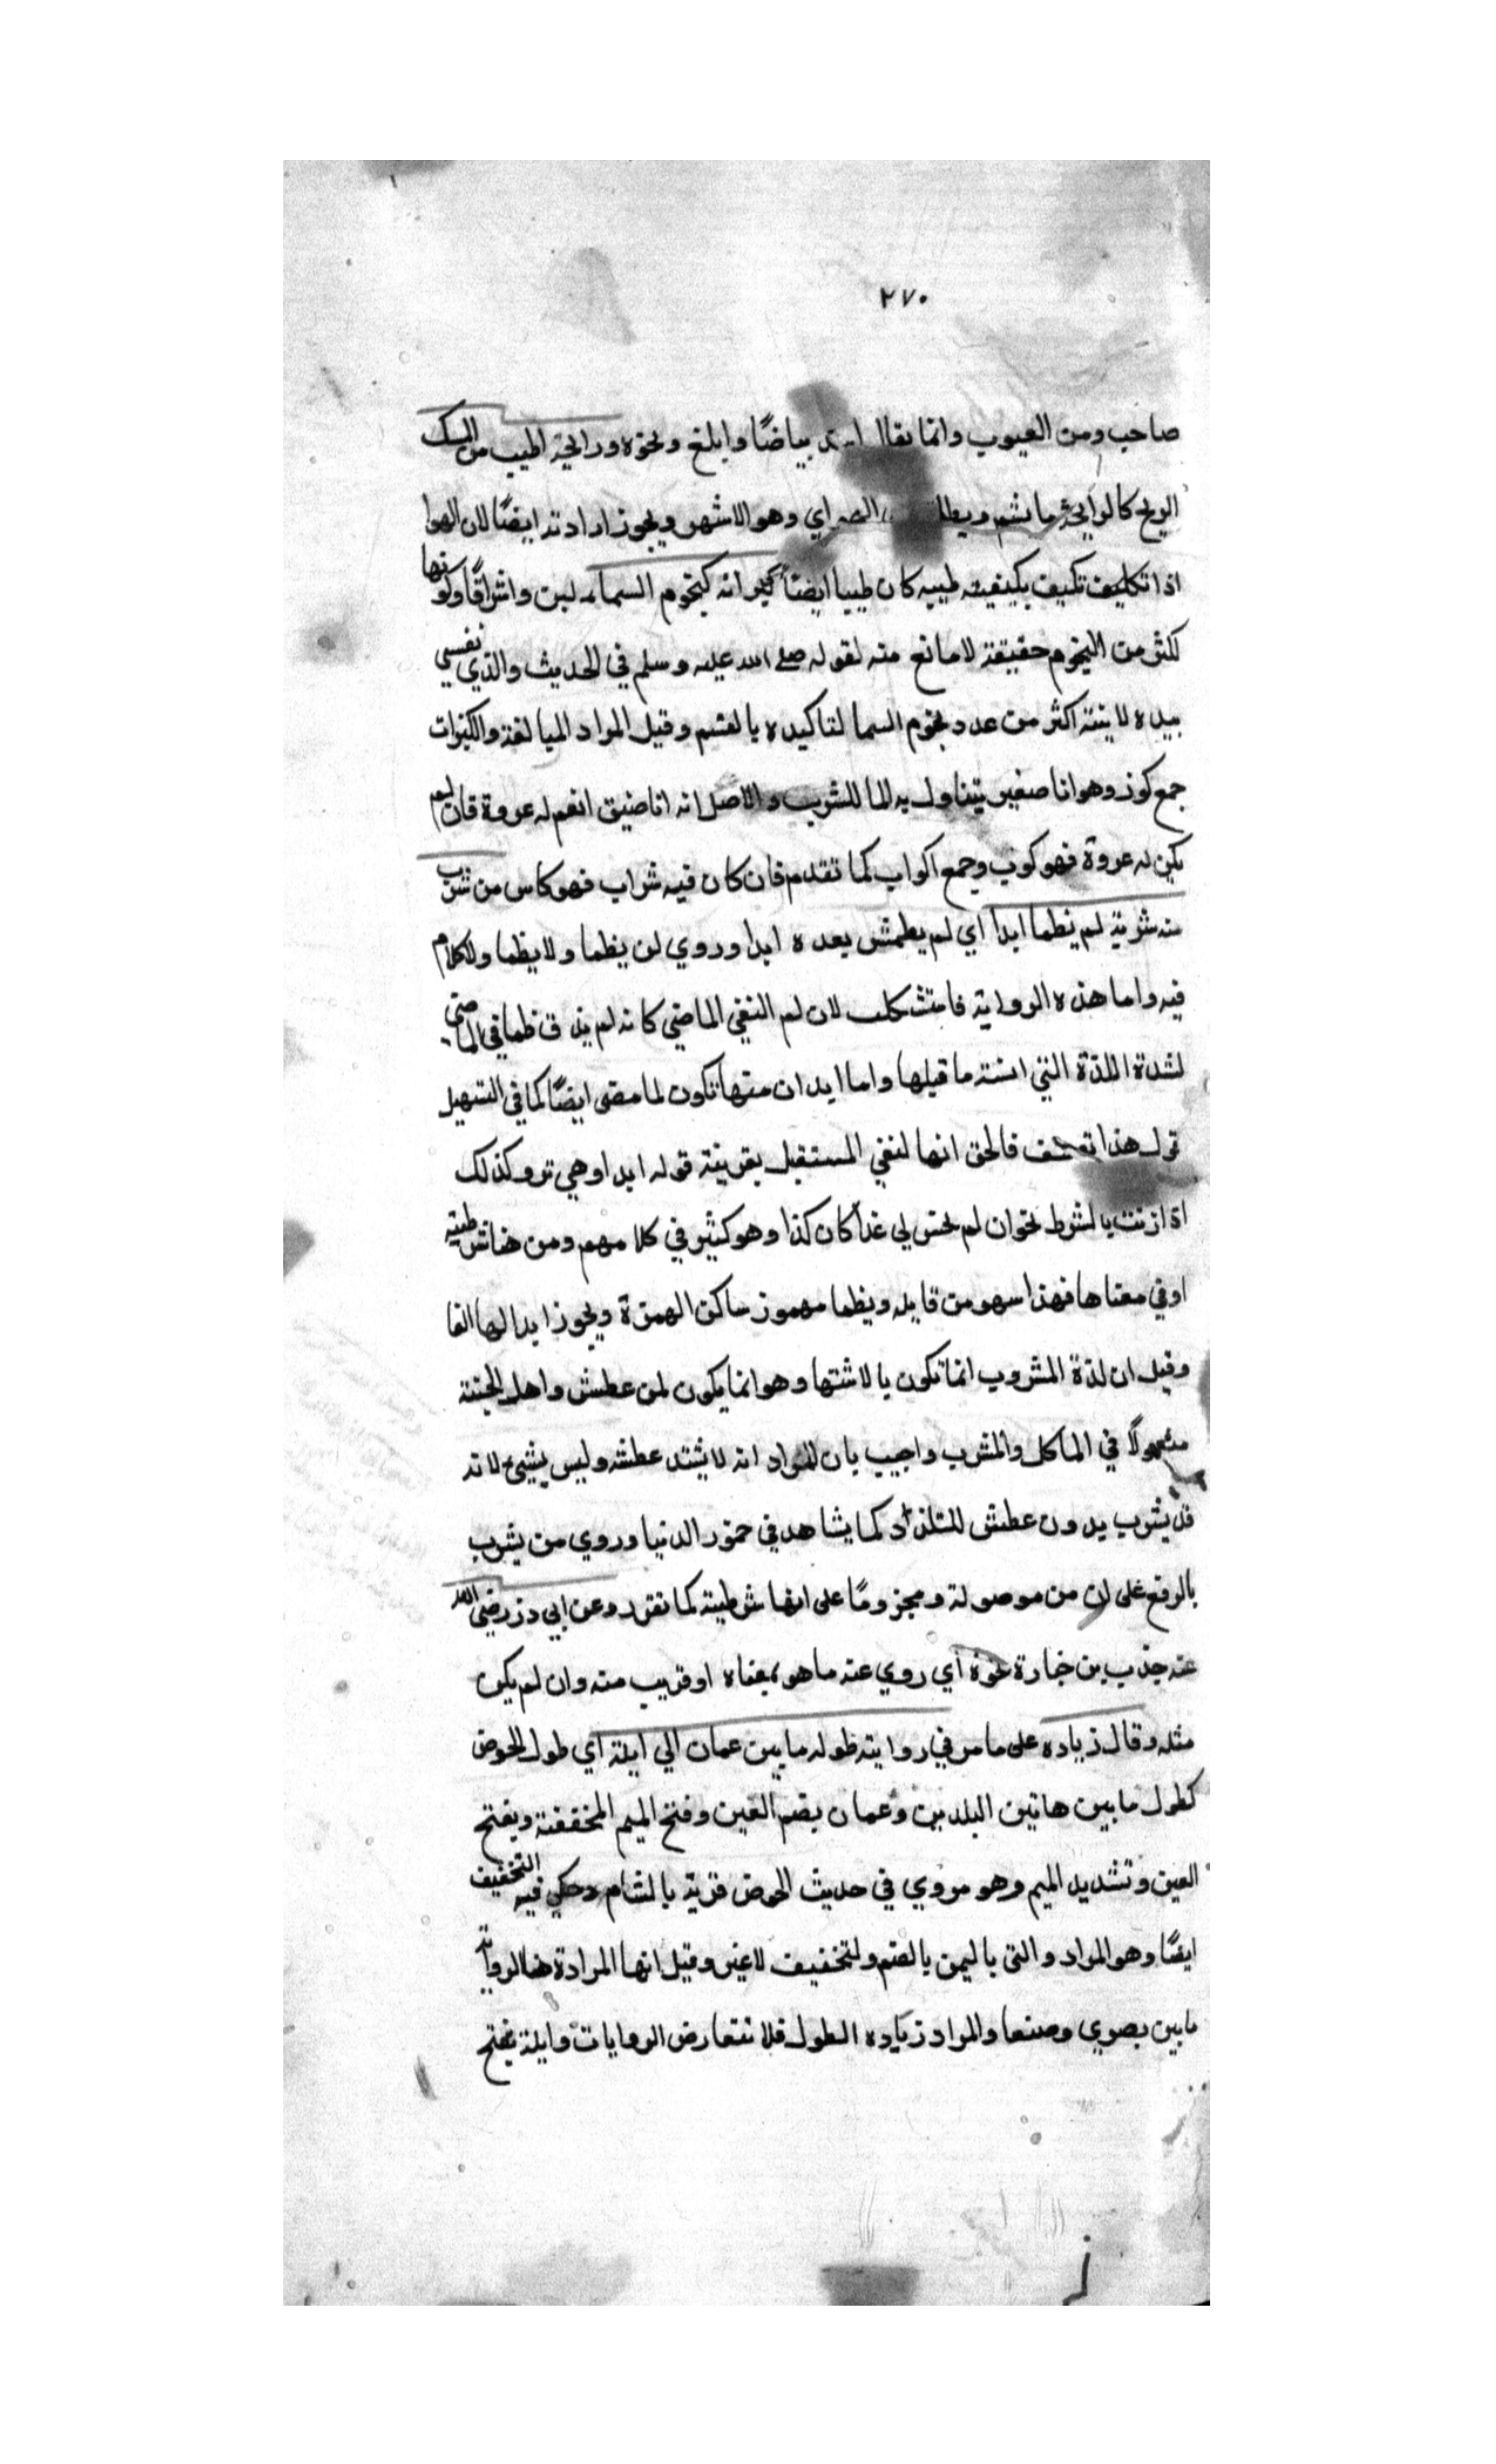 ٢٧٠
صاحب ومن العيوب وانما يقال اشد بياضًا وابلغ ونحوه ورايحته اطيب من المسك
الريح كالرايحة ما يشم ويطلق الهواي وهو الاشهر ويجوز ارادته ايضًا لان الهوا
اذا تكليف تكيف بكيفيته طيبه كان طيبا ايضًا كيزانه كنجوم السماء لبن واشراقًا وكونها
لكثر من النجوم حقيقة لا مانع منه لقوله صلي الله عليه وسلم في الحديث والذي نفسي
بيده لانيته اكثر من عدد نجوم السما لتاكيده بالقسم وقيل المراد المبالغة والكيزات
جمع كوز وهو انا صغير يتناول به الما للشرب والاصل انه انا ضيق الفم له عروة فان لم
يكن له عروة فهو كوب وجمع اكواب كما تقدم فان كان فيه شراب فهو كاس من شرب
منه شربة لم يظما ابدا اي لم يعطش بعده ابدا وروي لن يظما ولا يظما ولا كلام
فيه واما هذه الرواية فاستشكلت لان لم النفي الماضي كانه لم يذق ظما في الماضي
لشدة اللذة التي انسته ما قبلها واما ايدان منها تكون لما مضى ايضًا كما في التسهيل
قول هذا تعسف فالحق انها لنفي المستقبل بقرينة قوله ابدا وهي ترو كذلك
اذا زنت بالشرط نحو ان لم تحسن لي غدًا كان كذا وهو كثير في كلامهم ومن هنا شرطية
او في معناها فهذا سهو من قايله ويظما مهموز ساكن الهمزة ويجوز ابدالها الفا
وقيل ان لذة المشروب انما تكون بالاشتها وهو انما يكون لمن عطش واهل الجنة
منعمولًا في الماكل والمشرب واجيب بان المراد انه لا يشتد عطشه وليس بشيئ لانه
قد يشرب بدون عطش للتلذاذ كما يشاهد في خمور الدنيا وروي من يشرب
بالرفع على ان من موصولة ومجزومًا على انها شرطية كما تقرر وعن ابي ذر رضي الله
عنه جندب بن جنادة نحوه اي روي عنه ما هو بمعناه او قريب منه وان لم يكن
مثله وقال زياده على ما مر في روايته طوله ما بين عمان الي ايلة اي طول الحوض
كطول ما بين هاتين البلدين وعمان بضم العين وفتح الميم المخففة وبفتح
العين وتشديد الميم وهو مروي في حديث الحوض قرية بالشام وحكي فيه التخفيف
ايضًا وهو المراد والتى باليمن بالضم والتخفيف لا غير وقيل انها المرادة هنا لرواية
ما بين بصري وصنعا والمراد زياده الطول فلا تتعارض الروايات وايلة بفتح